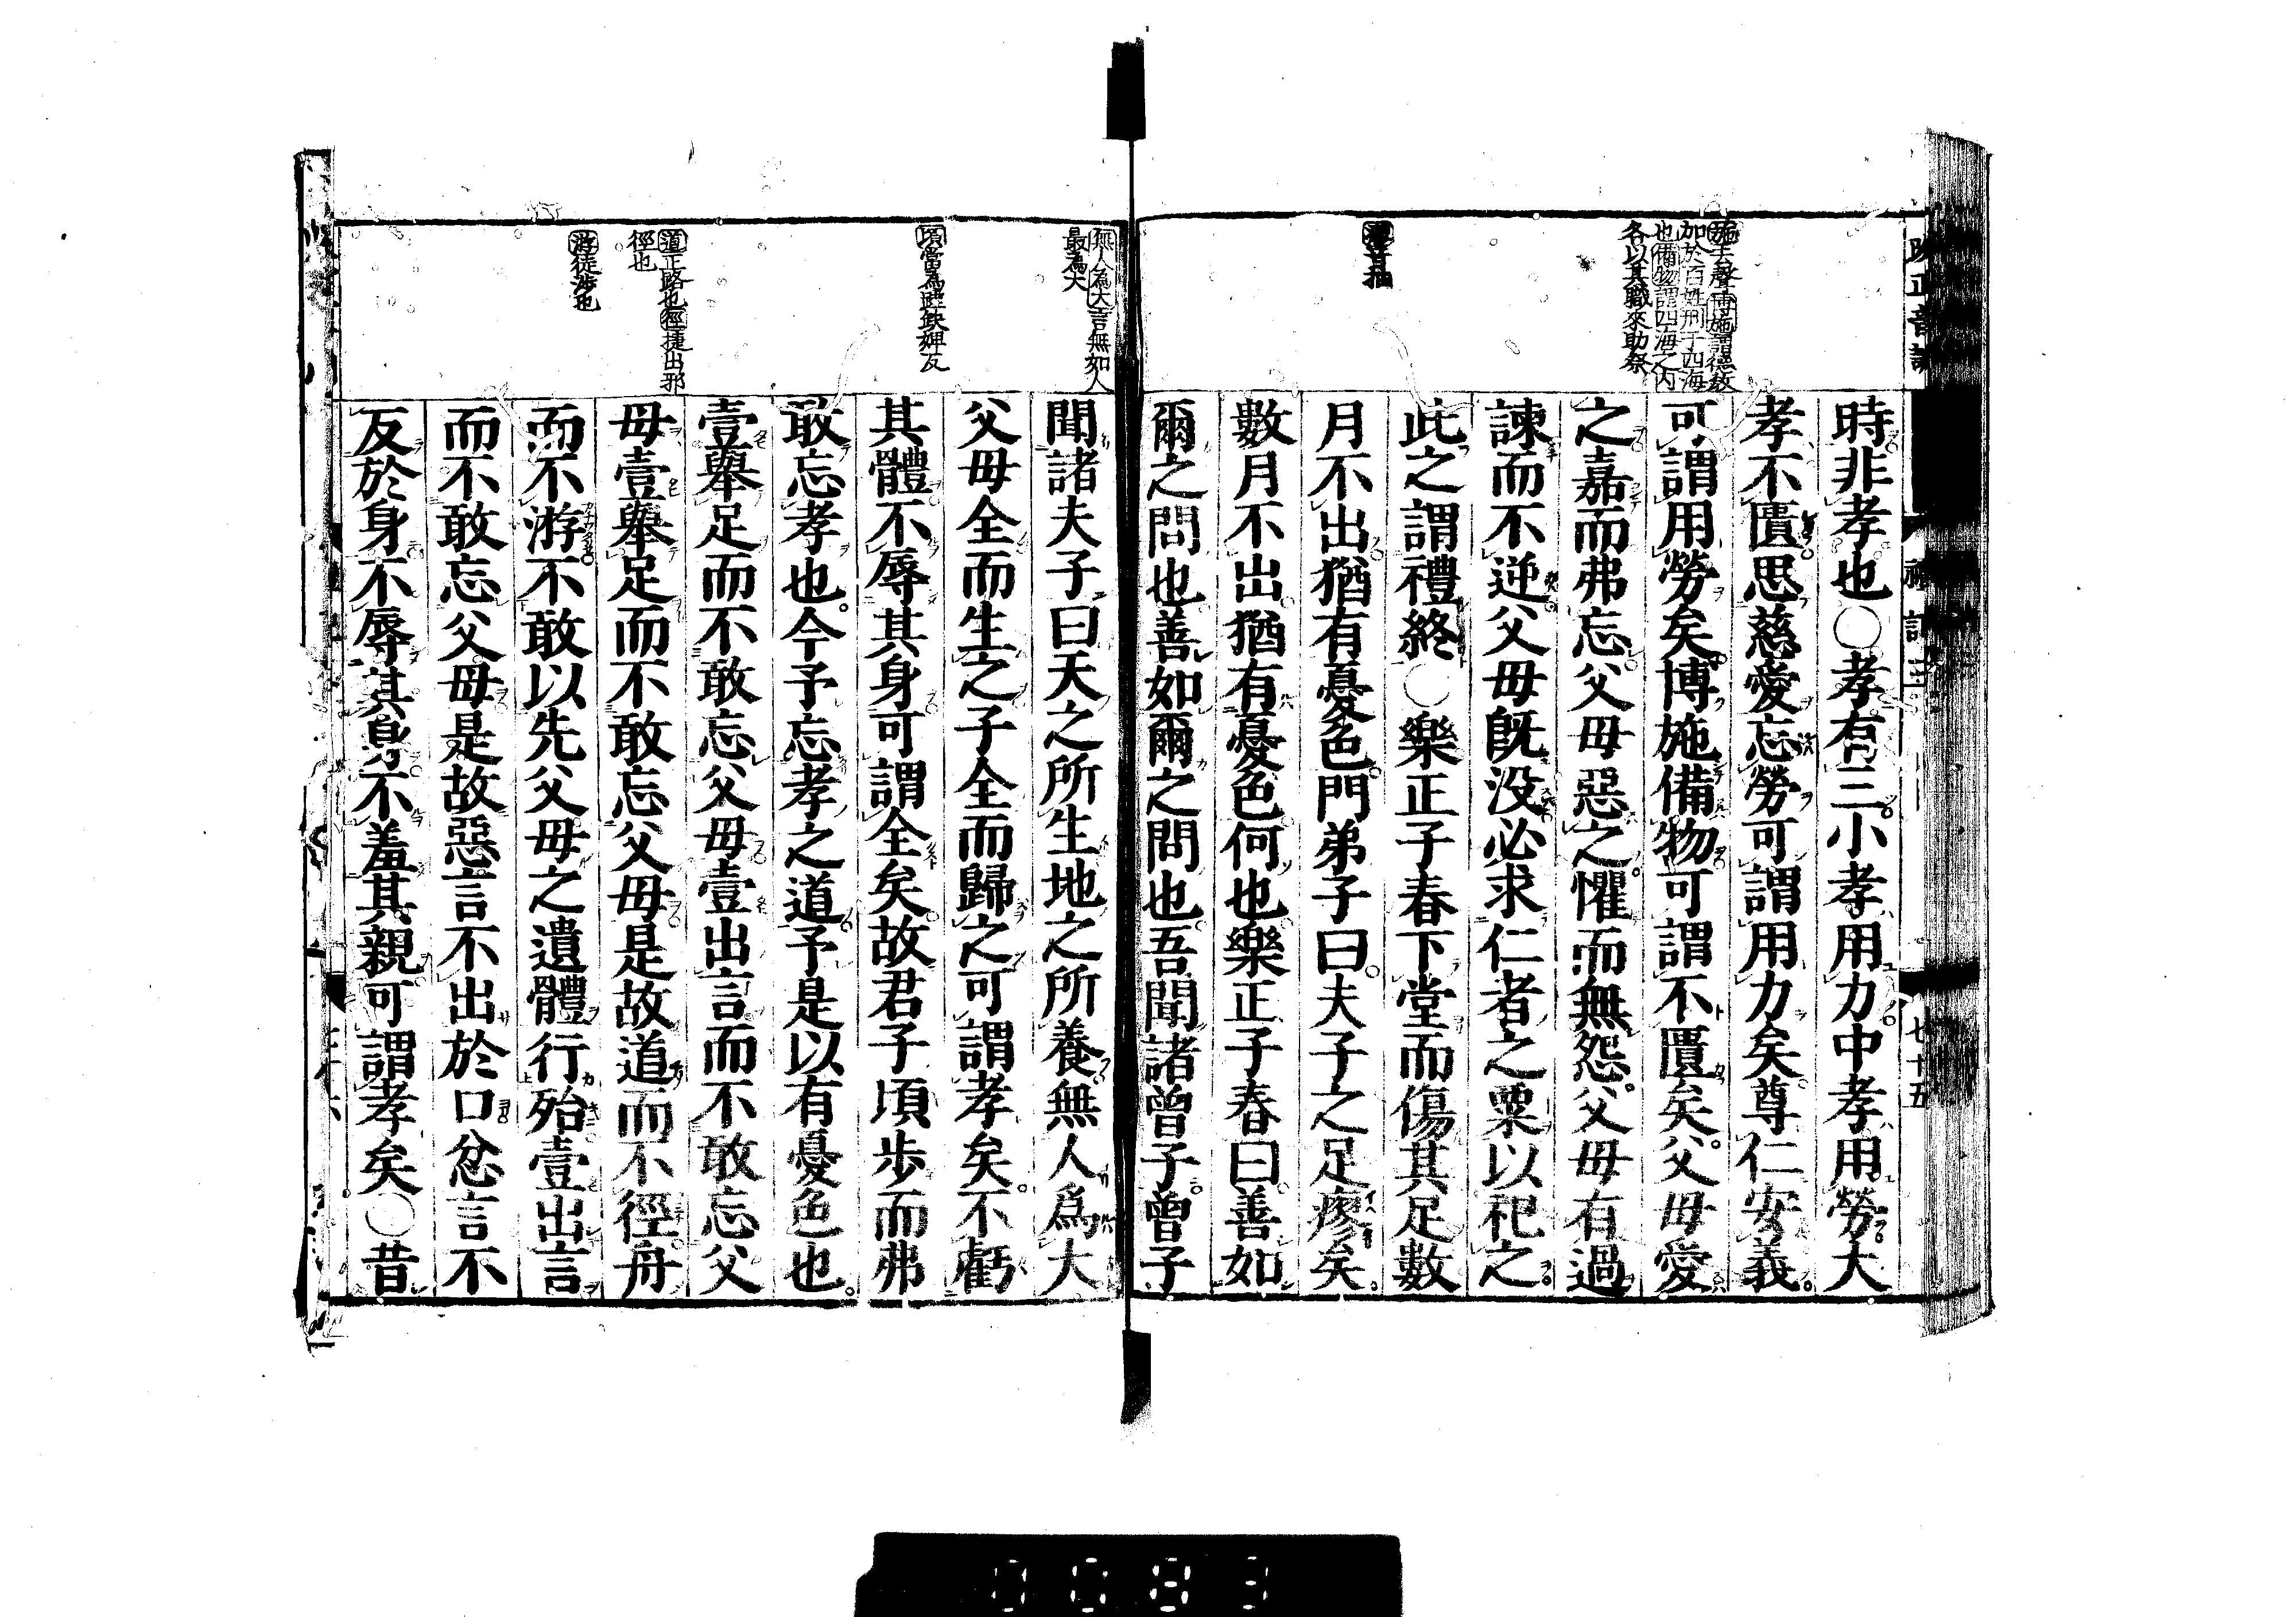 施去聲博施謂德教
加於百姓刑于四海
也備物謂四海之內
各以其職來助祭
時非孝也○孝有三小孝用力中孝用勞大
孝不匱思慈愛忘勞可謂用力矣尊仁安義
可謂用勞矣博施備物可謂不匱矣父母愛
之嘉而弗忘父母惡之懼而無怨父母有過
諫而不逆父母既没必求仁者之粟以祀之
此之謂禮終○樂正子春下堂而傷其足數
月不出猶有憂色門弟子曰夫子之足瘳矣
數月不出猶有憂色何也樂正子春曰善如
爾之問也善如爾之問也吾聞諸曾子曾子
七十五
無人為大言無如人
最為大
頃當為跬缺婢反
道正路也徑捷出邪
徑也
游徒涉也
聞諸夫子曰天之所生地之所養無人爲大
父母全而生之子全而歸之可謂孝矣不虧
其體不辱其身可謂全矣故君子頃步而弗
敢忘孝也今予忘孝之道予是以有憂色也
壹舉足而不敢忘父母壹出言而不敢忘父
母壹舉足而不敢忘父母是故道而不徑舟
而不游不敢以先父母之遺體行殆壹出言
而不敢忘父母是故惡言不出於口忿言不
反於身不辱其身不羞其親可謂孝矣○昔
0083